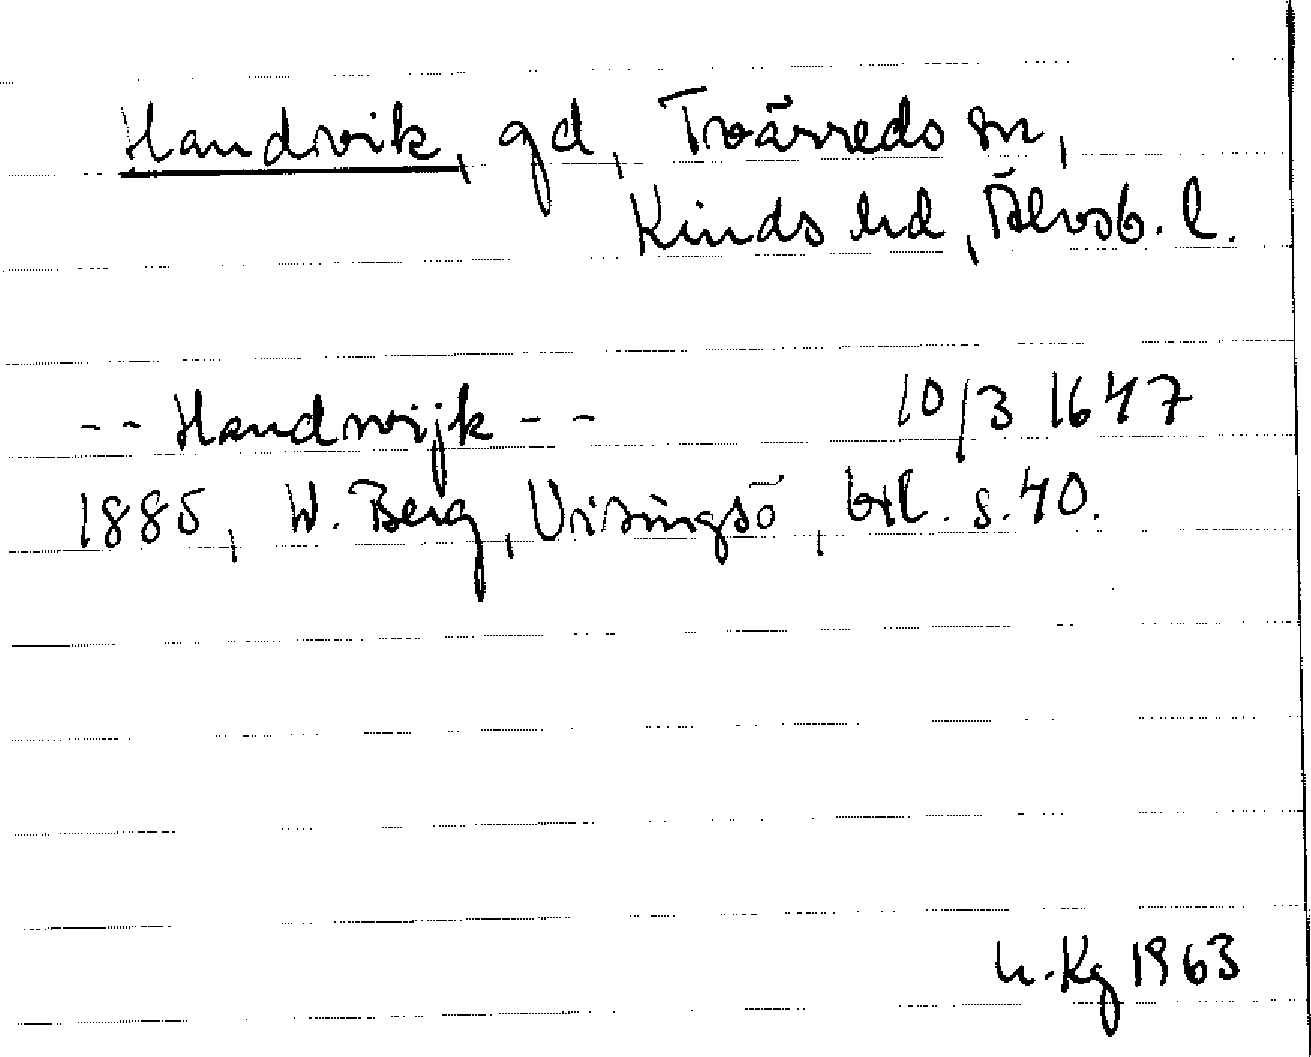 Handvik, gd, Tvärreds sn,
Kinds hd, Älvsb. l.
-- Handwijk -- 10/3 1647
1885, W. Berg, Visingsö, bil. s. 40.
h. Kg 1963